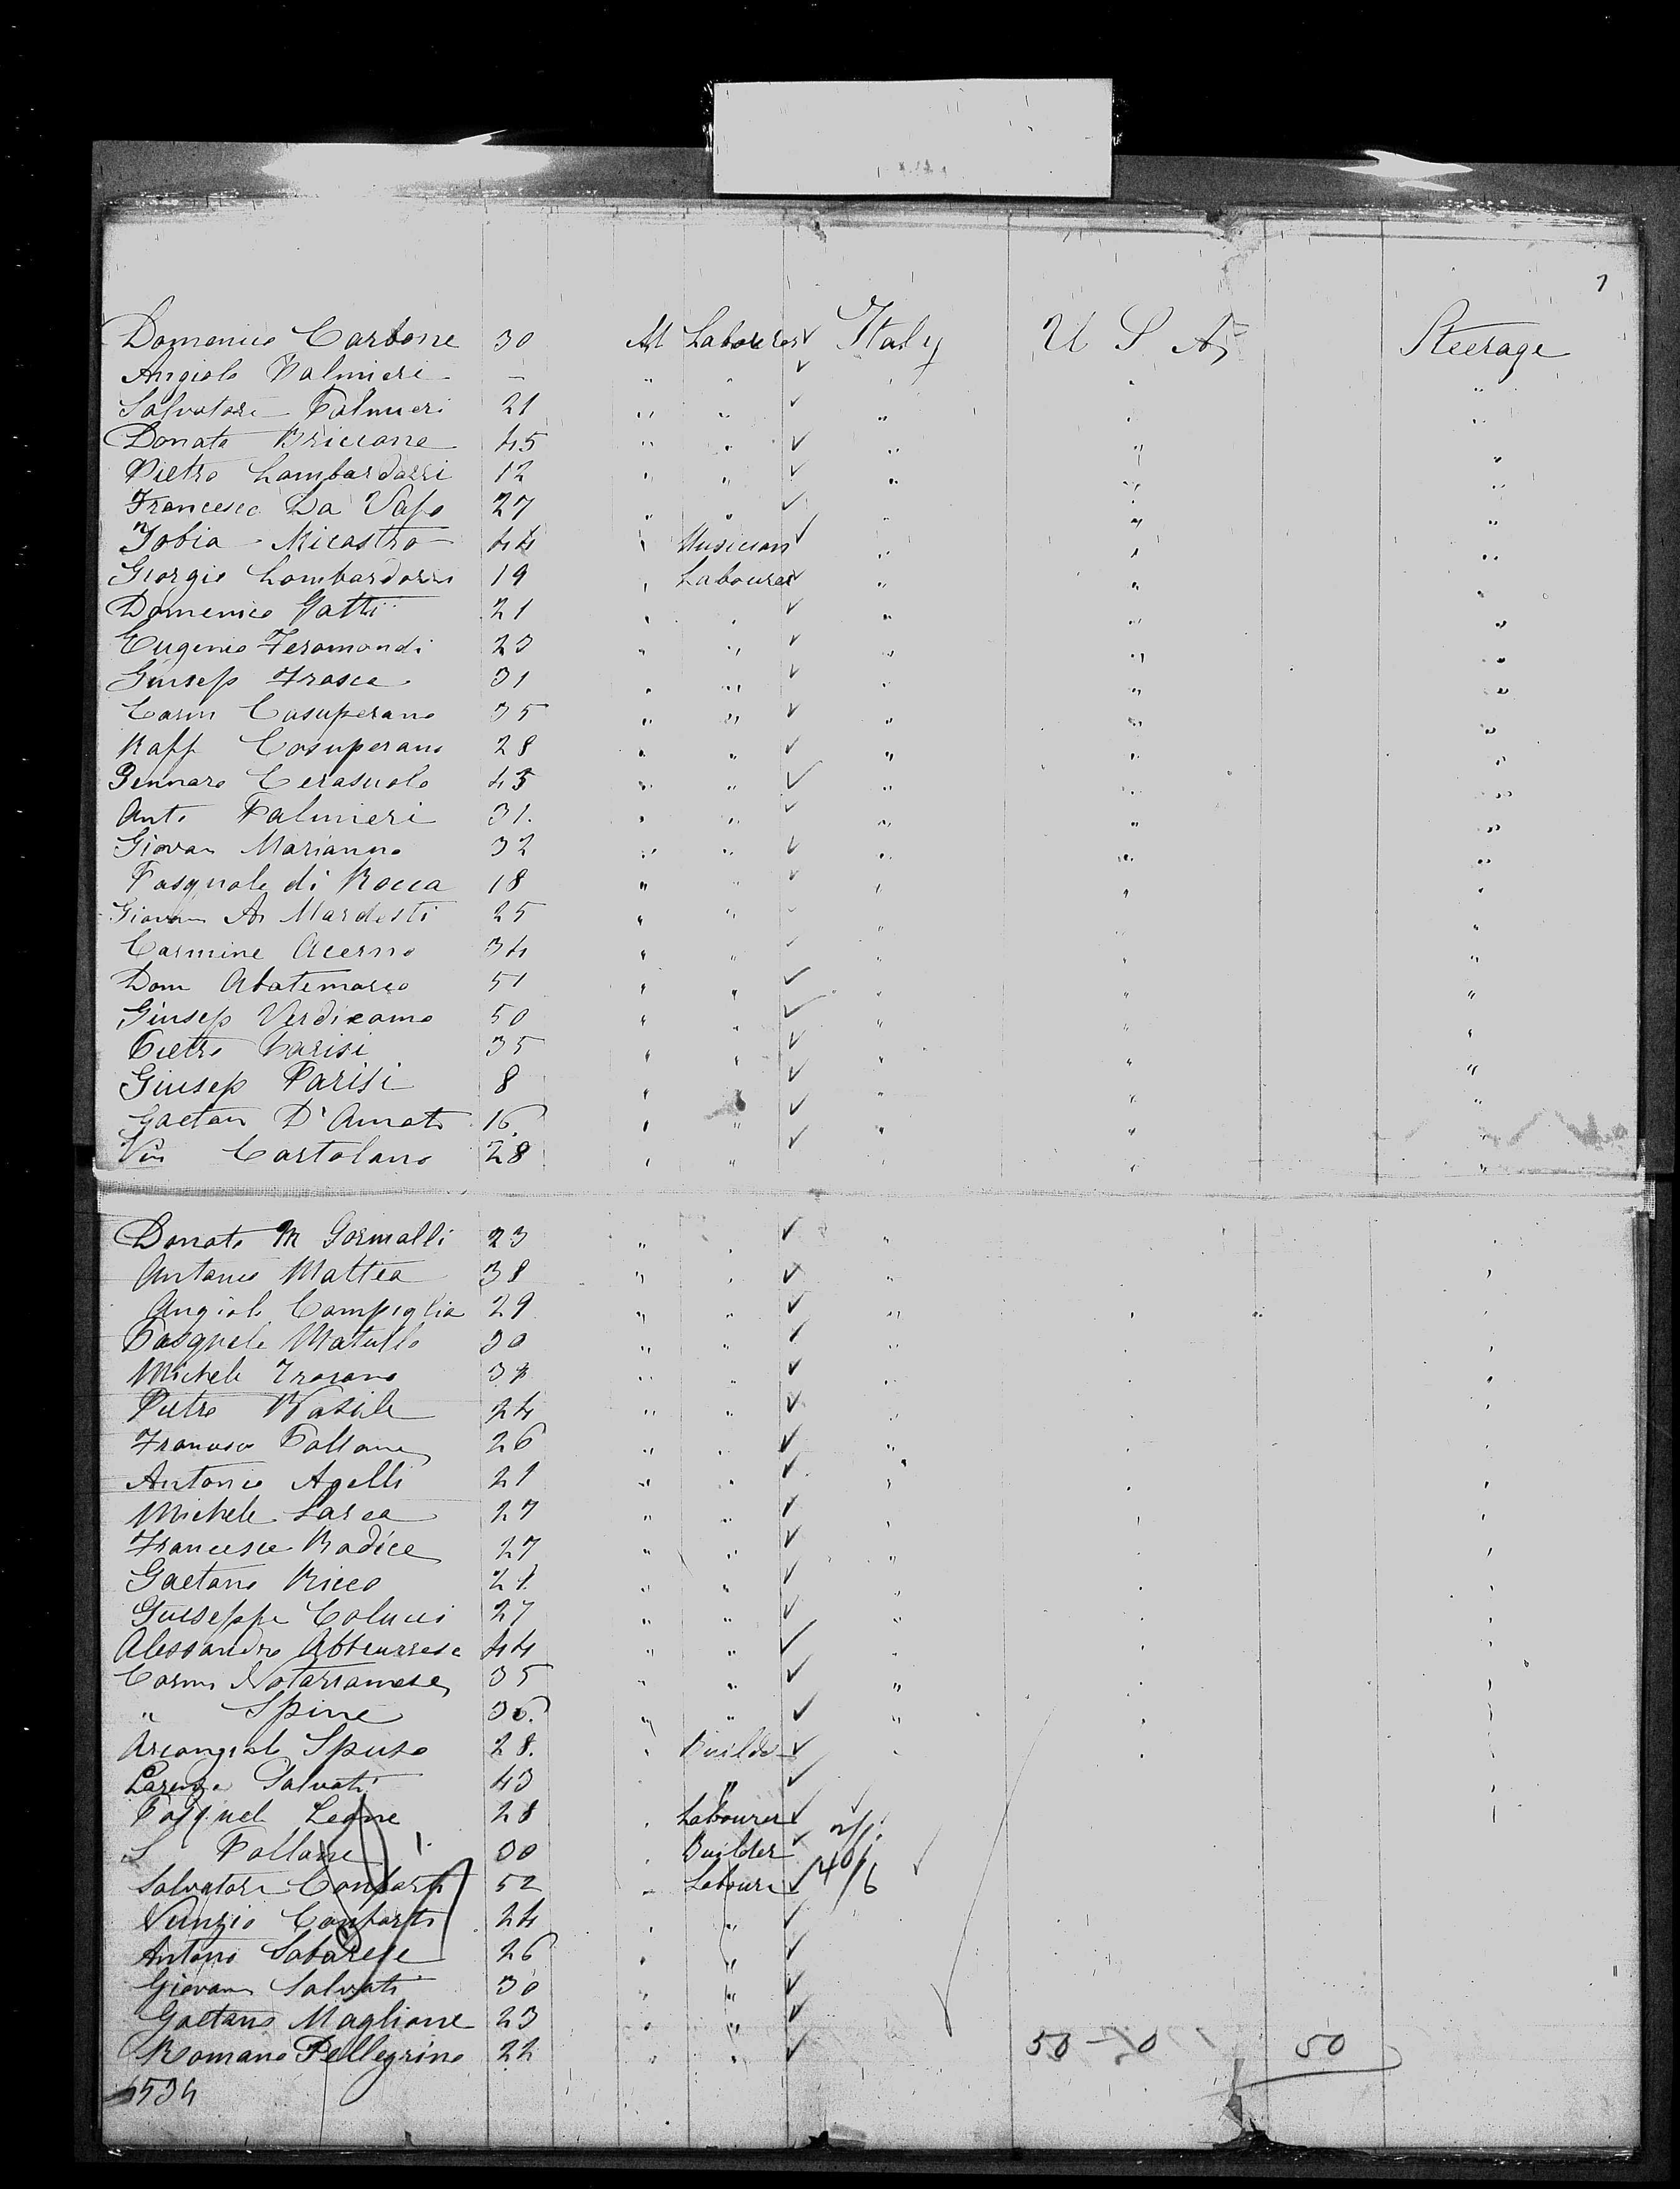 1
Domenico Carbone 30 M Labourer ✓ Italy U S A Steerage
Angiolo Palmieri — " " ✓ " " "
Salvatore Palmieri 21 " " ✓ " " "
Donato Briccone 45 " " ✓ " " "
Pietro Lombardozzi 12 " " ✓ " " "
Francesco Da 27 " " ✓ " " "
Tobia Nicastro 44 " Musician ✓ " " "
Giorgio Lombardozzi 19 " Labourer ✓ " " "
Domenico Gatti 21 " " ✓ " " "
Eugenio Feramondi 23 " " ✓ " " "
Giusep Frasca 31 " " ✓ " " "
Carm Casuperano 35 " " ✓ " " "
Raff Cosuperano 28 " " ✓ " " "
Gennaro Cerasuolo 45 " " ✓ " " "
Anto Palmieri 31. " " ✓ " " "
Giovan Marianno 32 " " ✓ " " "
Pasquale di Rocca 18 " " ✓ " " "
Giovan A Mardesti 25 " " ✓ " " "
Carmine Acerno 34 " " ✓ " " "
Dom Abatemarco 51 " " ✓ " " "
Giusep Verdicamo 50 " " ✓ " " "
Pietro Parisi 35 " " ✓ " " "
Giusep Parisi 8 " " ✓ " " "
Gaetan D'Amato 16 " " ✓ " " "
Vin Cartolano 28 " " ✓ " " "
Donato M Gormalli 23 " " ✓ "
Antonio Mattea 38 " " ✓ "
Angiolo Campiglia 29 " " ✓ " " " "
Pasquele Matullo 30 " " ✓ " " "
Michele 3 " " ✓ " " "
Pietro Basile 24 " " ✓ " " "
Francesco Pallone 26 " " ✓ " " "
Antonio Agelli 21 " " ✓ " " "
Michele Larca 27 " " ✓ " "
Francesco Radice 27 " " ✓ " "
Gaetano Ricco 21 " " ✓ " " "
Giuseppe Colucci 27 " " ✓ " " "
Alessandro 44 " " ✓ " " "
Carm Notarianese 35 " " ✓ " " "
" Spine 36. " " ✓ " " "
Arcangelo Spuso 28. " Builder ✓ " " "
Lorenzo Salvati 43 " " ✓
Pasquel Leone 28 " Labourer ✓
S Pallone 30 " Builder ✓
Salvatore Conforti 52 " Laboure ✓ 40/6
Nunzio Conforti 24 " " ✓
Antonio Sabarese 26 " " ✓
Giovan Salvati 30 " " ✓
Gaetano Maglione 23 " " ✓
Romano Pellegrino 22 " " ✓ 50 - 0 50
4534